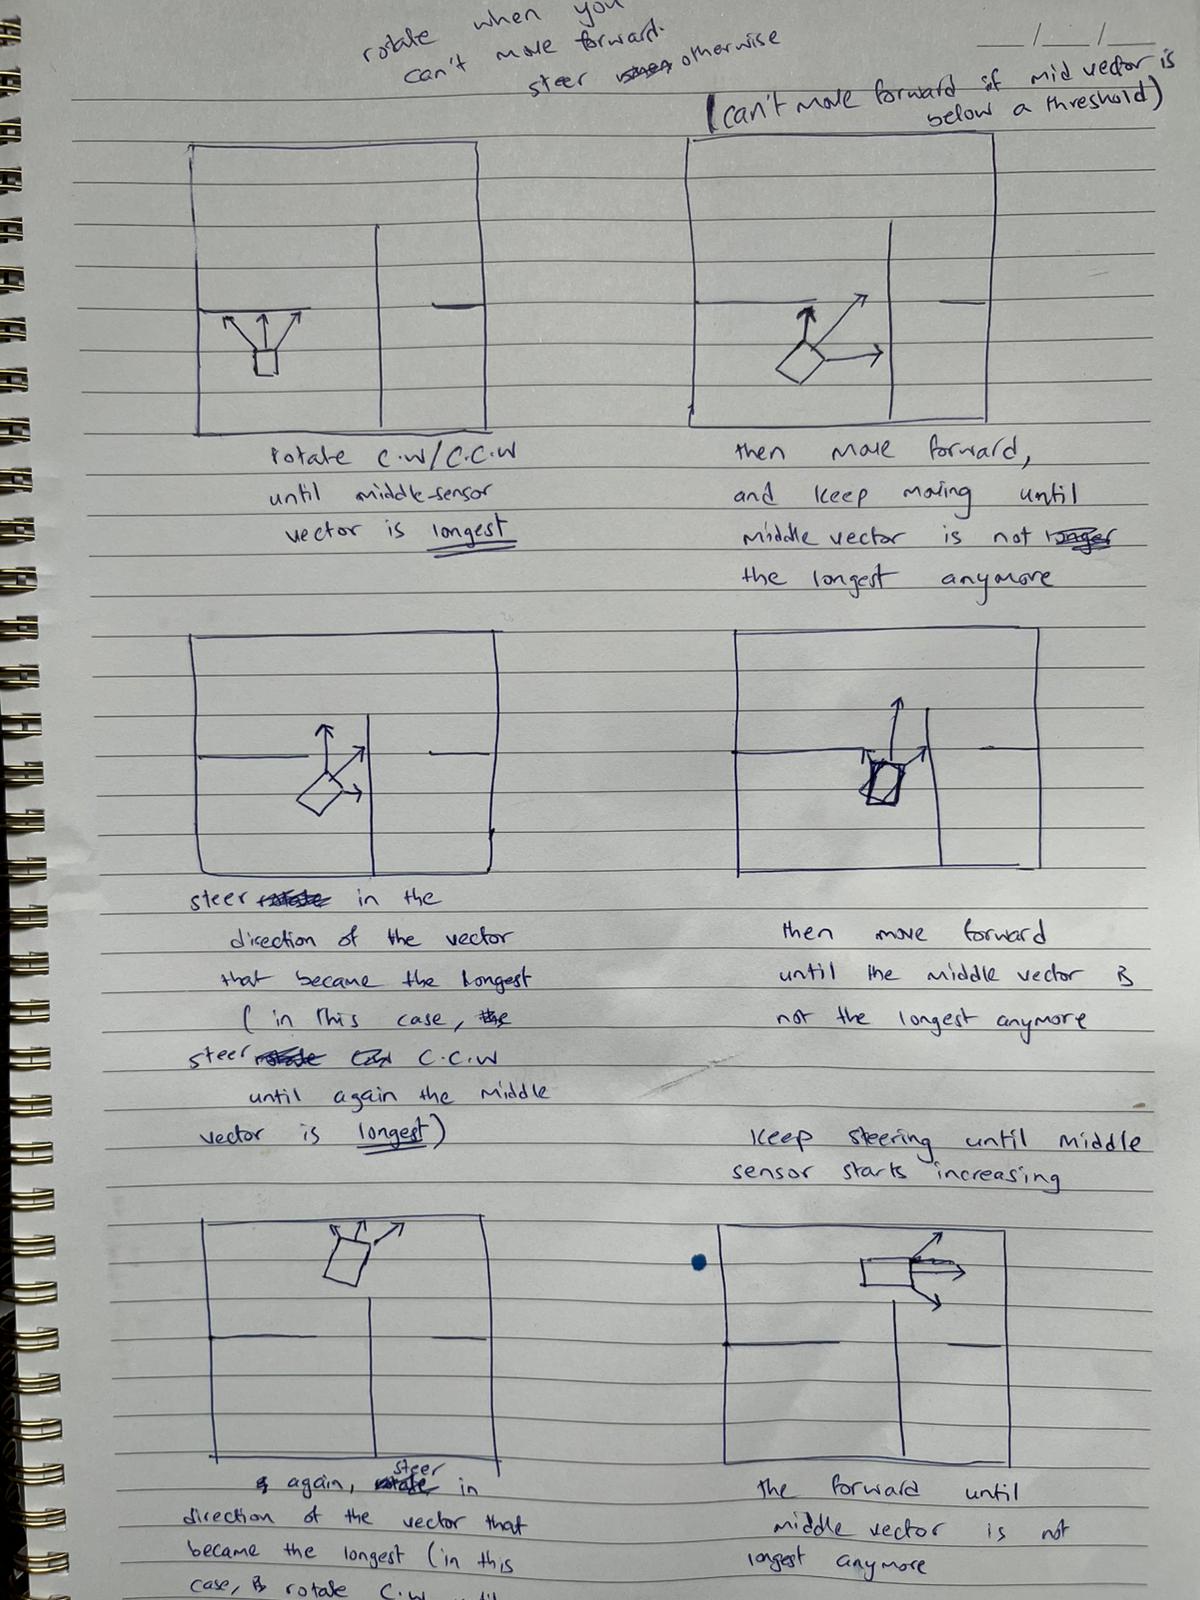 rotate when you
can't move forward.
steer when otherwise
__/__/__
(can't move forward if mid vector is
below a threshold)
rotate C.W/C.C.W
until middle-sensor
vector is longest
then move forward,
and keep moving until
middle vector is not longer
the longest anymore
steer rotate in the
direction of the vector
that became the longest
(in this case, the
steer rotate C.C.W
until again the middle
vector is longest)
then move forward
until the middle vector is
not the longest anymore
keep steering until middle
sensor starts increasing
again, rotate steer in
direction of the vector that
became the longest (in this
case, rotate C.W until
the forward until
middle vector is not
longest anymore